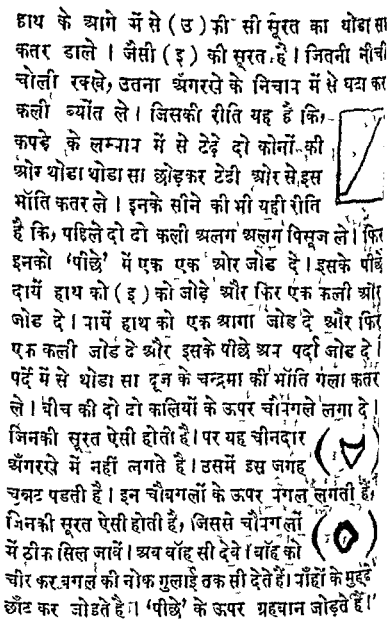 हाथ के आगे में से ( उ ) की सी सूरत का थोडा सा
कतर डाले । जैसी ( इ ) की सूरत है । जितनी नीची
चोली रक्खे, उतना अँगरखे के निचान में से घटा कर
कली ब्योंत ले । जिसकी रीति यह है कि,
कपडे के लम्बान में से टेढे दो कोनों की
ओर थोडा थोडा सा छोडकर टेढी ओर से, इस
भाँति कतर ले । इनके सीने की भी यही रीति
है कि, पहिले दो दो कली अलग अलग पिसूज ले । फिर
इनको 'पीछे' में एक एक ओर जोड दे । इसके पीछे
दायें हाथ को ( इ ) को जोडे और फिर एक कली और
जोड दे । बायें हाथ को एक आगा जोड दे और फिर
एक कली जोड दे और इसके पीछे अब पर्दा जोड दे ।
पर्दे में से थोडा सा दूज के चन्द्रमा की भाँति गला कतर
ले । बीच की दो दो कलियों के ऊपर चौबगले लगा दे ।
जिनकी सूरत ऐसी होती है । पर यह चीनदार
अँगरखे में नहीं लगते है । उसमें इस जगह
चन्नट पडती है । इन चौबगलों के ऊपर बगल लगती है,
जिनकी सूरत ऐसी होती है, जिससे चौबगलों
में ठीक सिल जावें । अब बाँह सी देवे । बाँह को
चीर कर बगल की नोक गुलाई तक सी देते हैं । बाँहों के मुहड्डे
छाँट कर जोडते है । 'पीछे' के ऊपर ग्रहवान जोडते हैं ।